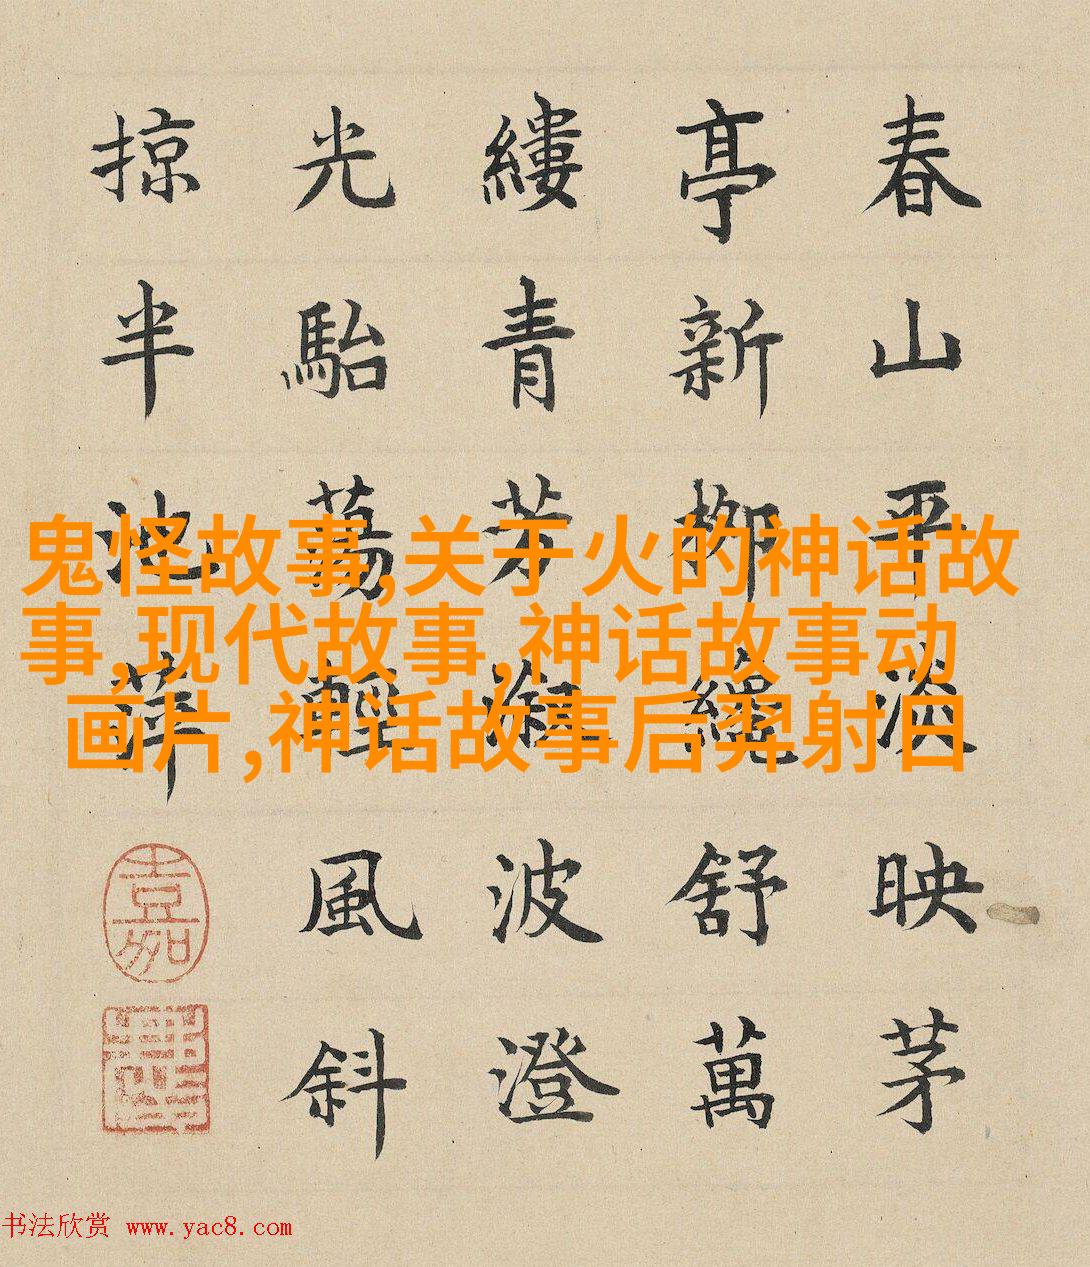 春山平映茅
亭新柳纔舒萬
縷青芳溆波澄
光駘蕩輕風斜
掠半池萍
嘉
鬼怪故事,关于火的神话故
事,现代故事,神话故事动
画片,神话故事后羿射日
书法欣赏 www.yac8.com